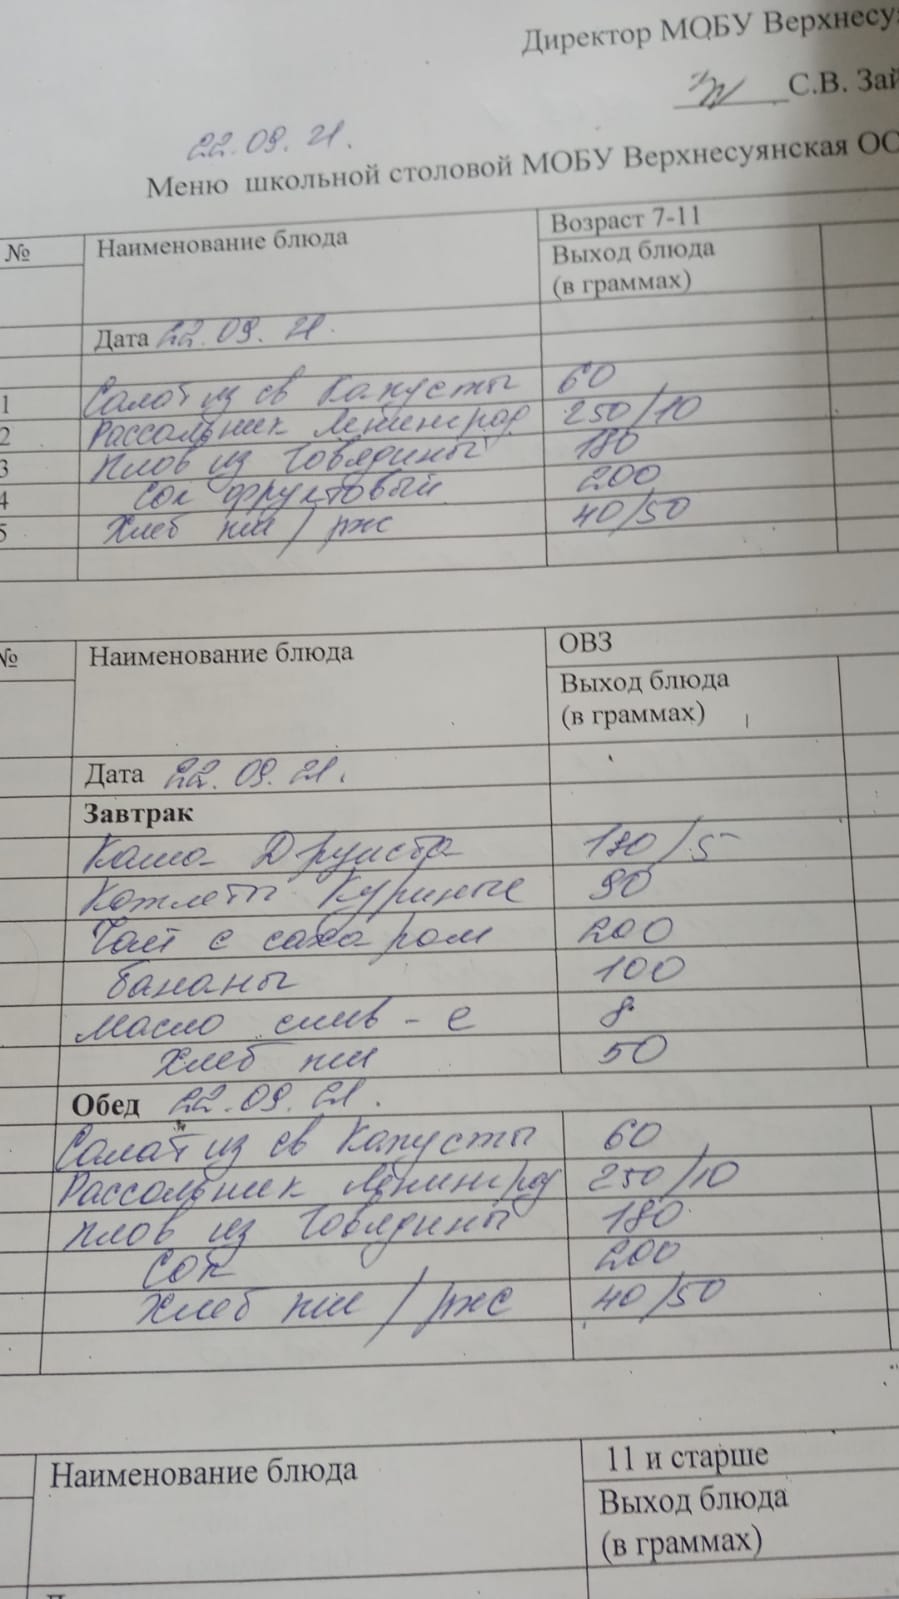 Директор МОБУ Верхнесу
С.В. Зай
22.09.21.
Меню школьной столовой МОБУ Верхнесуянская ОО
№ Наименование блюда Возраст 7-11
Выход блюда
(в граммах)
Дата 22.09.21.
1 Салат из св капусты 60
2 Рассольник Ленинград 250/10
3 Плов из говядины 180
4 Сок фруктовый 200
5 Хлеб пш / ржс 40/50
№ Наименование блюда ОВЗ
Выход блюда
(в граммах)
Дата 22.09.21.
Завтрак
Каша Дружба 180/5
Котлеты куриные 90
Чай с сахаром 200
бананы 100
Масло слив-е 8
Хлеб пш 50
Обед 22.09.21.
Салат из св капусты 60
Рассольник Ленинград 250/10
Плов из говядины 180
Сок 200
Хлеб пш / ржс 40/50
Наименование блюда 11 и старше
Выход блюда
(в граммах)